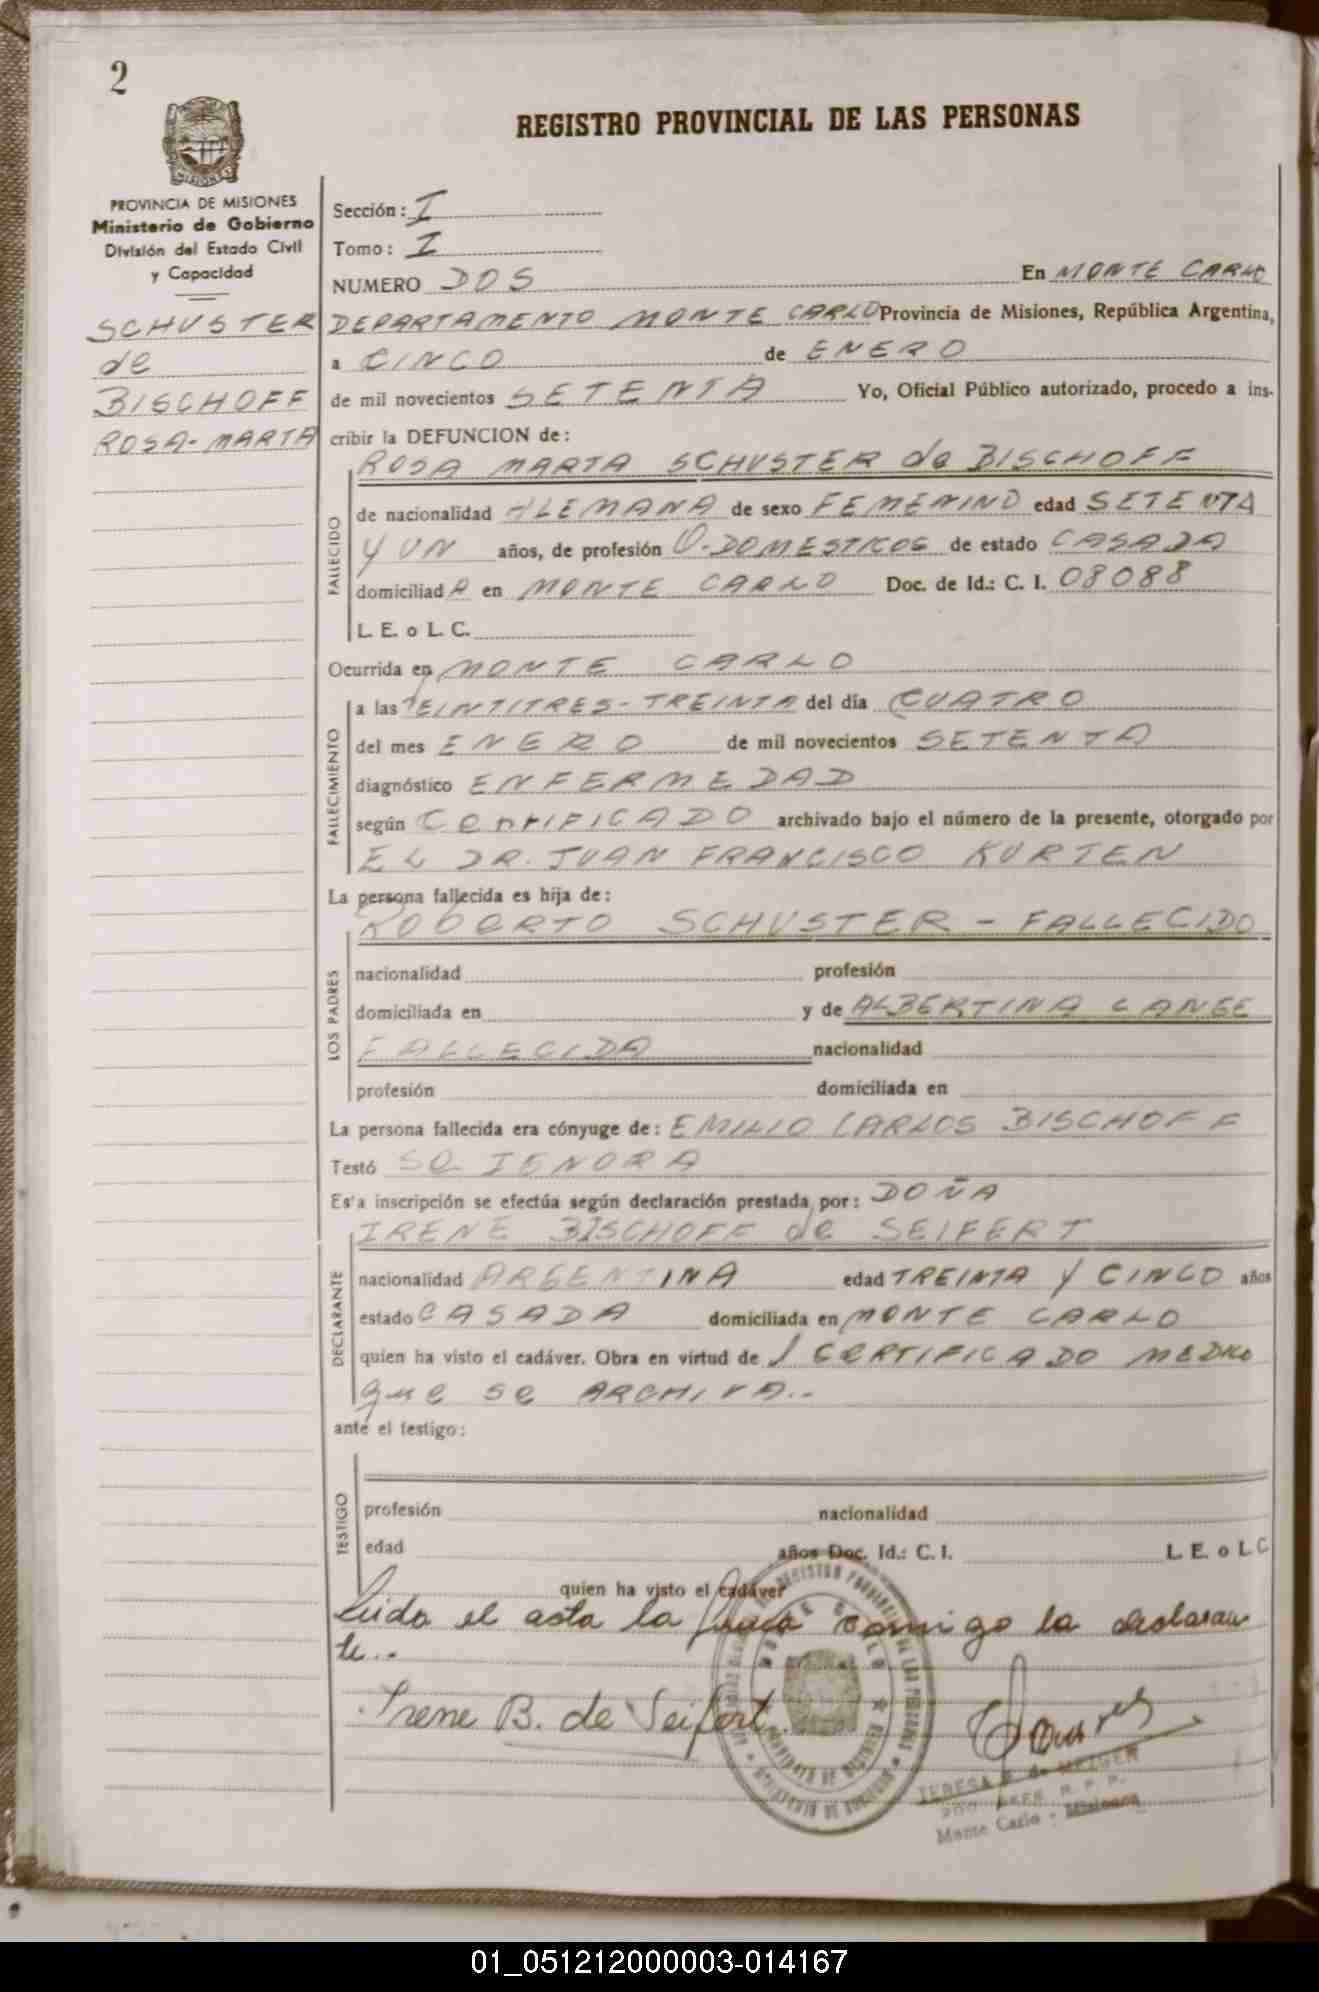 2
REGISTRO PROVINCIAL DE LAS PERSONAS
PROVINCIA DE MISIONES
Ministerio de Gobierno
División del Estado Civil
y Capacidad
SCHUSTER
de
BISCHOFF
ROSA-MARTA
Sección: I
Tomo: I
NUMERO DOS En MONTE CARLO
DEPARTAMENTO MONTE CARLO Provincia de Misiones, República Argentina,
a CINCO de ENERO
de mil novecientos SETENTA Yo, Oficial Público autorizado, procedo a ins-
cribir la DEFUNCION de:
ROSA MARTA SCHUSTER de BISCHOFF
FALLECIDO
de nacionalidad ALEMANA de sexo FEMENINO edad SETENTA
Y UN años, de profesión Q-DOMESTICOS de estado CASADA
domiciliadA en MONTE CARLO Doc. de Id.: C. I. 08088
L. E. o L. C.
Ocurrida en MONTE CARLO
FALLECIMIENTO
a las VEINTITRES-TREINTA del día CUATRO
del mes ENERO de mil novecientos SETENTA
diagnóstico ENFERMEDAD
según CERTIFICADO archivado bajo el número de la presente, otorgado por
EL DR. JUAN FRANCISCO KURTEN
La persona fallecida es hija de:
ROBERTO SCHUSTER - FALLECIDO
LOS PADRES
nacionalidad profesión
domiciliada en y de ALBERTINA LANGE
FALLECIDA nacionalidad
profesión domiciliada en
La persona fallecida era cónyuge de: EMILIO CARLOS BISCHOFF
Testó SE IGNORA
Es'a inscripción se efectúa según declaración prestada por: DOÑA
IRENE BISCHOFF de SEIFERT
DECLARANTE
nacionalidad ARGENTINA edad TREINTA Y CINCO años
estado CASADA domiciliada en MONTE CARLO
quien ha visto el cadáver. Obra en virtud de 1 CERTIFICADO MEDICO
que se ARCHIVA..
ante el testigo:
TESTIGO
profesión nacionalidad
edad años Doc. Id.: C. I. L. E. o L C
quien ha visto el cadáver
Leida el acta la firma conmigo la declaran
te..
Irene B. de Seifert.
TERESA
Monte Carlo - Misiones
01_051212000003-014167